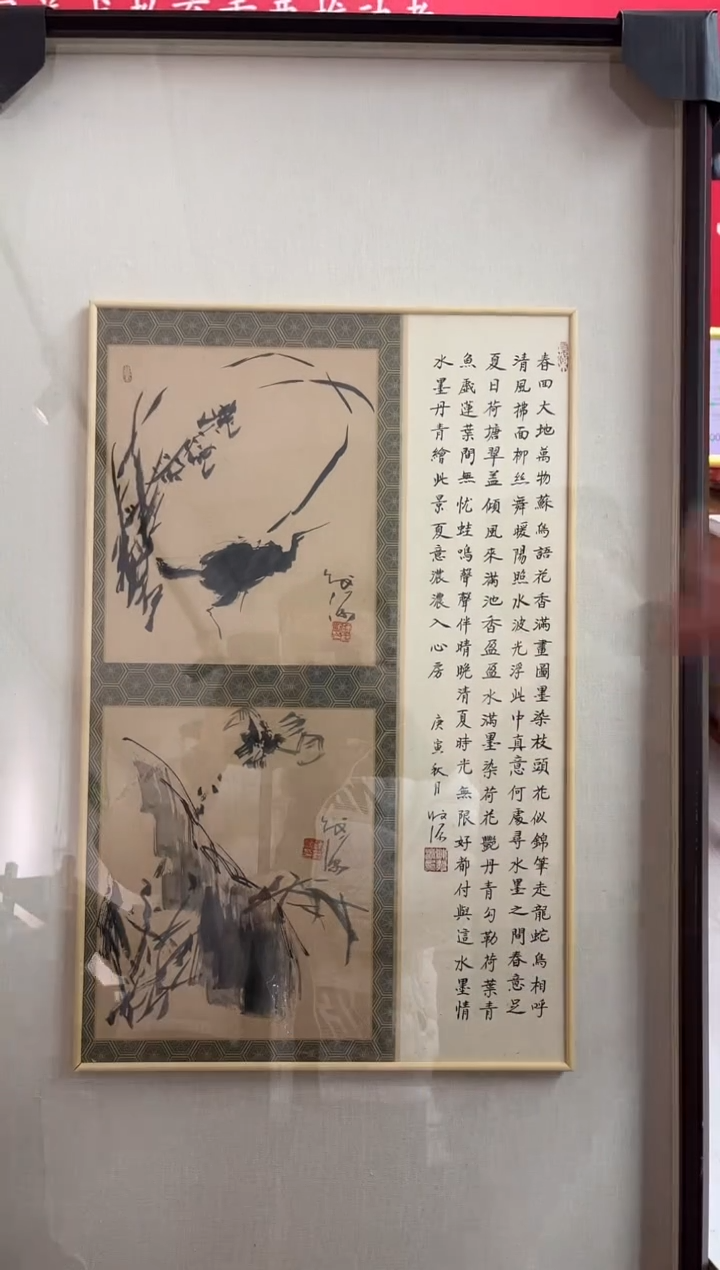 春回大地萬物蘇鳥語花香滿畫圖墨染枝頭花似錦筆走龍蛇鳥相呼
清風拂面柳絲舞暖陽照水波光浮此中真意何處尋水墨之間春意足
夏日荷塘翠蓋傾風來滿池香盈盈水滿墨染荷花艷丹青勾勒荷葉青
魚戲蓮葉間無忧蛙鳴聲聲伴晴晚清夏時光無限好都付與這水墨情
水墨丹青繪此景夏意濃濃入心房
庚寅秋月